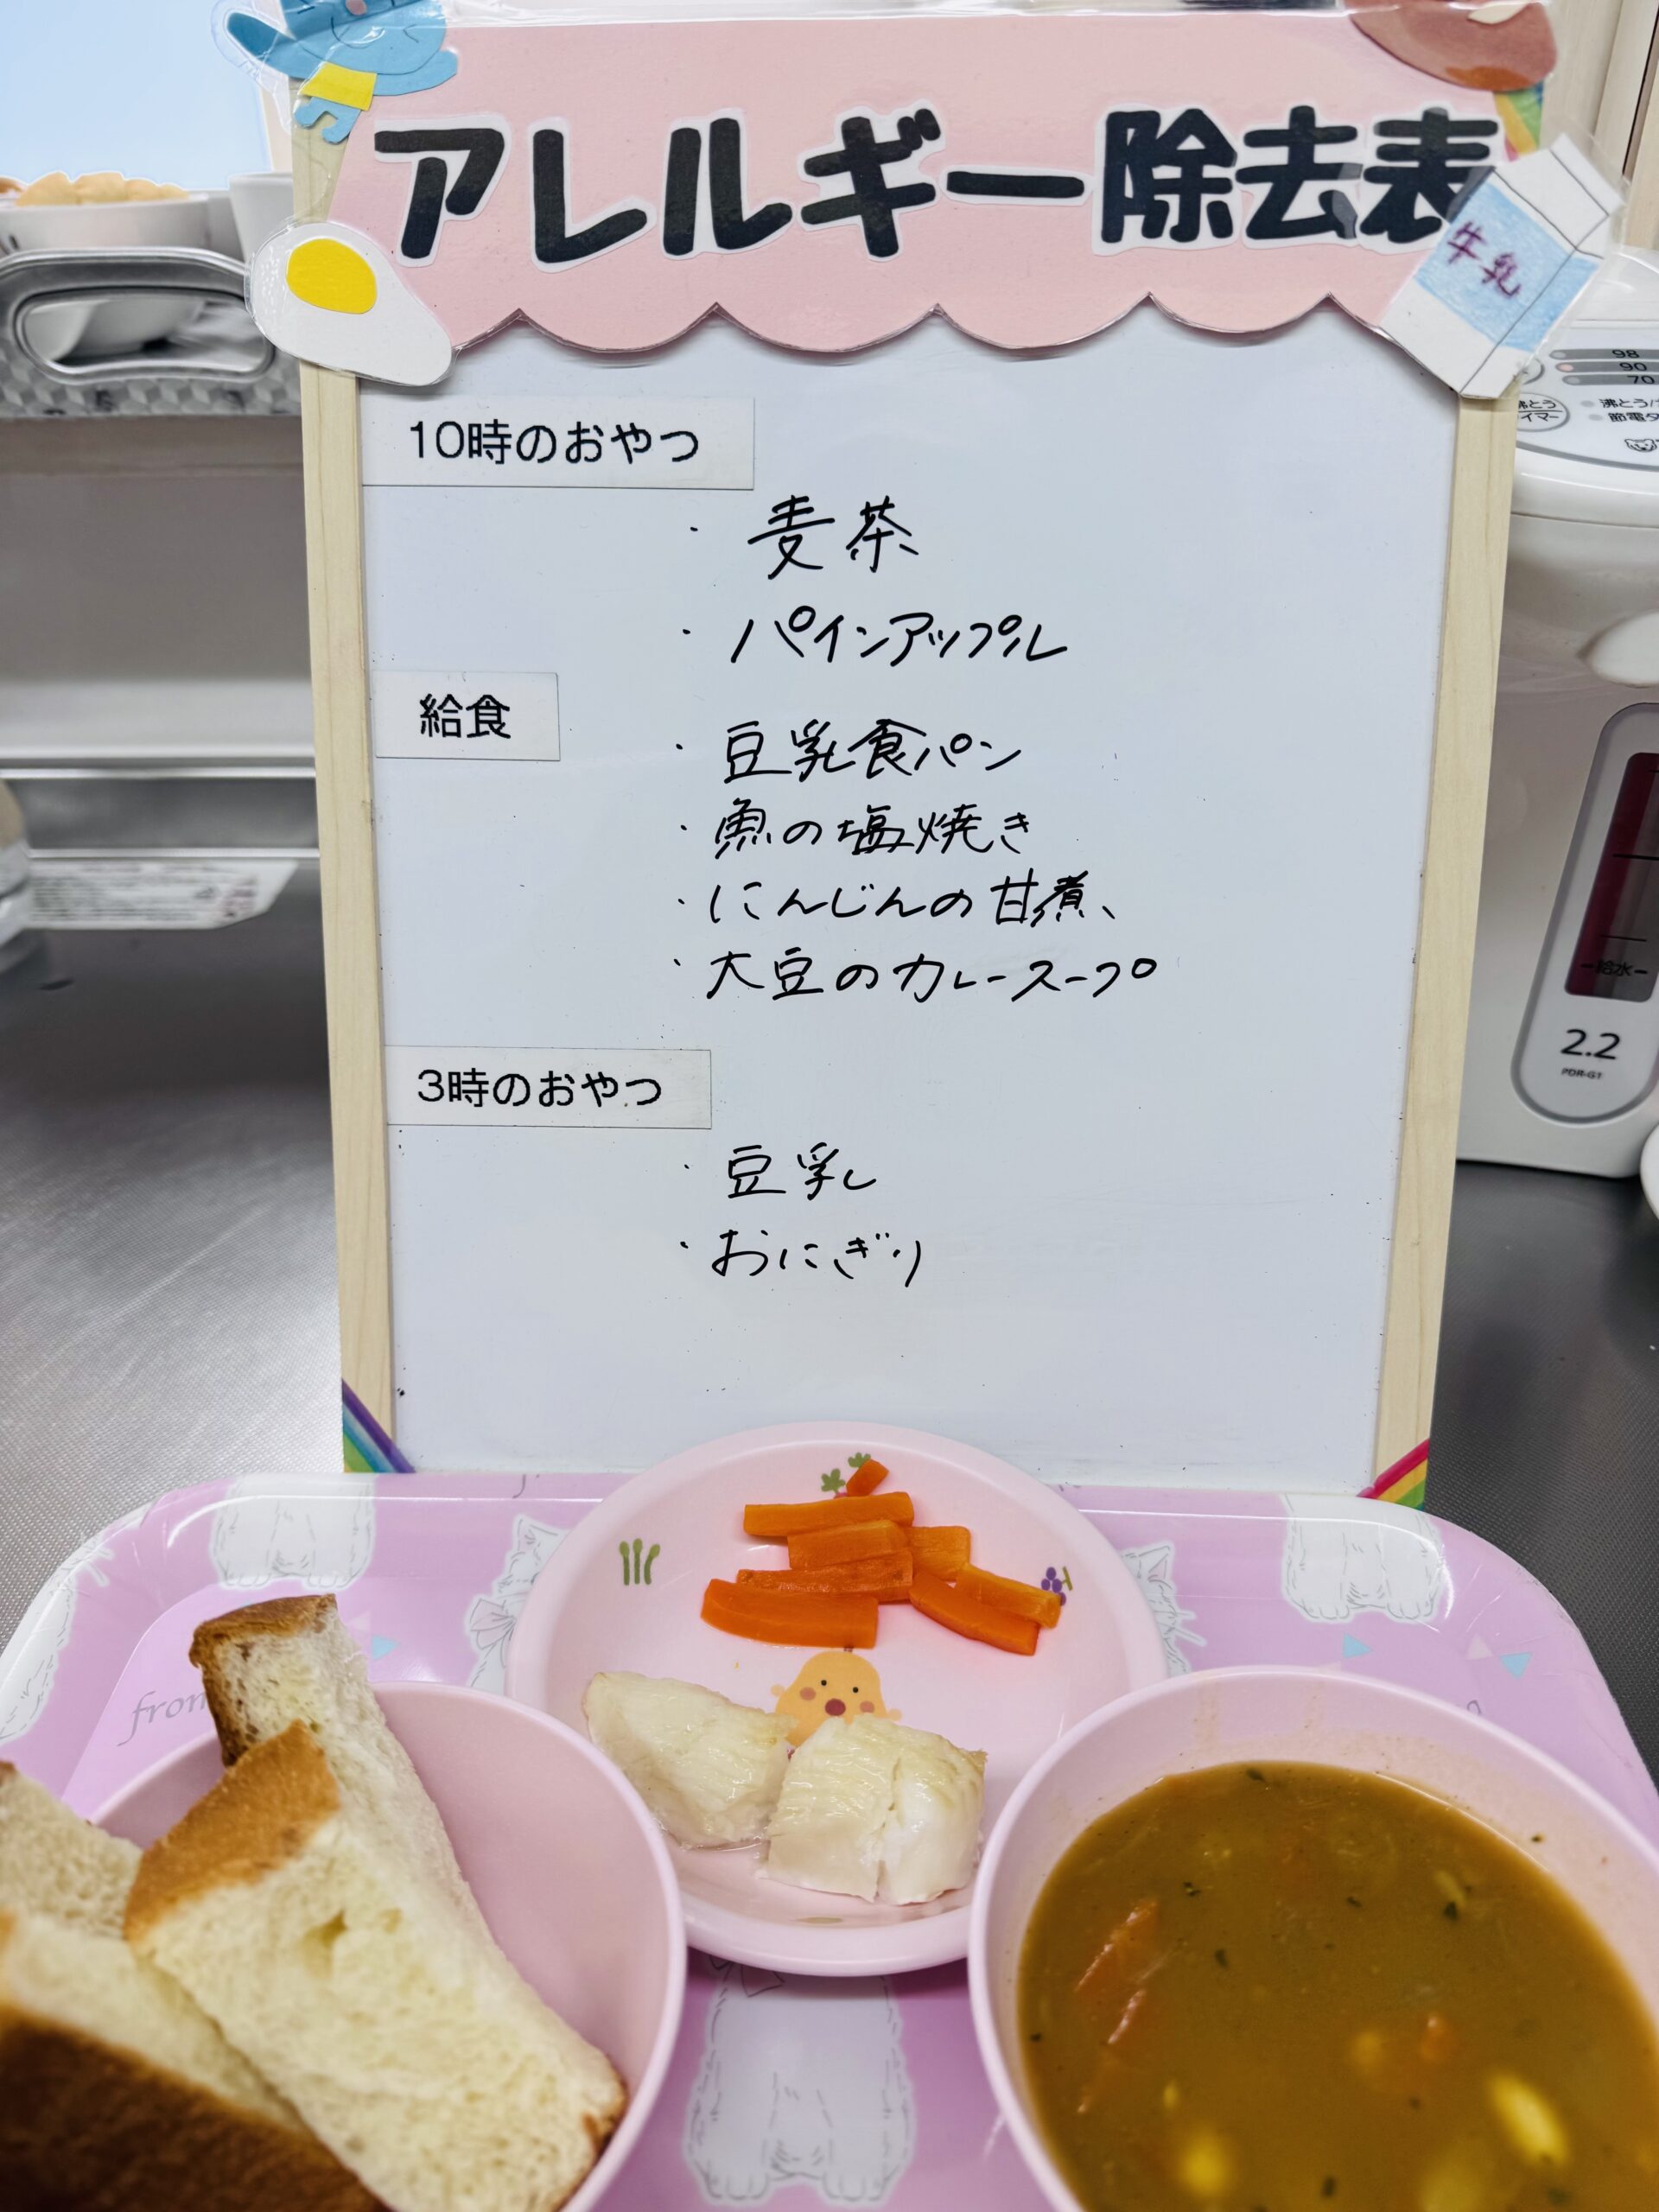 アレルギー除去表
牛乳
10時のおやつ
・麦茶
・パインアップル
給食
・豆乳食パン
・魚の塩焼き
・にんじんの甘煮、
・大豆のカレースープ
3時のおやつ
・豆乳
・おにぎり
98
90
70
沸とう
節電タ
給水
2.2
PDR-G1
from